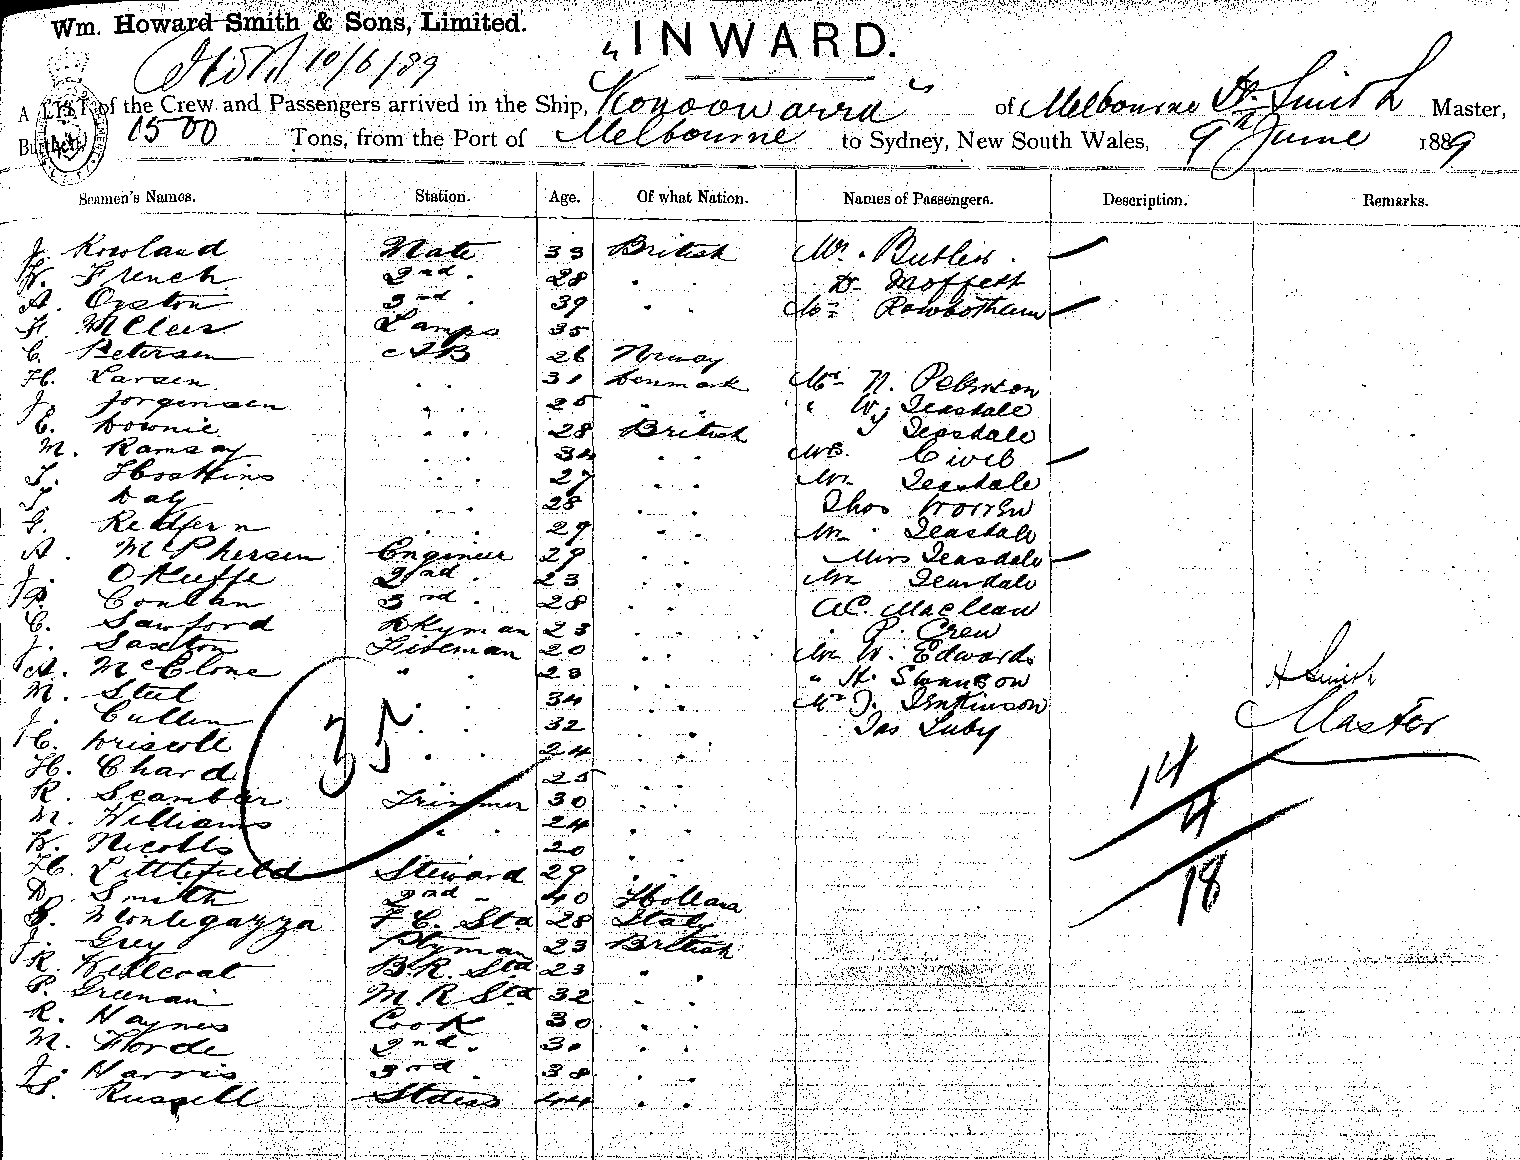 Wm. Howard Smith & Sons, Limited.
"INWARD.
10/6/89
A LIST of the Crew and Passengers arrived in the Ship, "Konoowarra" of Melbourne H. Smith Master,
Burthen 1500 Tons, from the Port of Melbourne to Sydney, New South Wales, 9th June 1889
Seamen's Names. Station. Age. Of what Nation. Names of Passengers. Description. Remarks.
J. Rowland Mate 33 British Mr. Butler.
W. French 2nd. 28 " " Dr. Moffett
A. Oyston 3rd. 39 " " Rowbotham
McCleer Lamps 35
C. Petersen AB 26 Norway
H. Larsen " " 31 Denmark N. Peterson
J. Jorgensen " " 25 " " " W. Teasdale
C. Downie " " 28 British Teasdale
M. Ramsay " " 34 " " Mrs.
T. Hoskins " " 27 " " Teasdale
T. Day " " 28 " " Thos Warren
G. Redfern " " 29 " " Teasdale
A. McPhersen Engineer 29 " " Miss Teasdale
J. OKeeffe 2nd. 23 " " Teasdale
P. Conlan 3rd. 28 " " A.C. Maclean
C. Sawford Dkyman 23 " " P. Crew
J. Saxton Fireman 20 " " W. Edwards
A. McClone " 23 " " " H. Swanson
M. Steel " " 34 " " J. Jenkinson
J. Cullen " " 32 " " Jas Luby
H. Driscoll " " 24 " "
H. Chard 25 " "
R. Scambler Trimmer 30 " "
M. Williams " " 24 " "
W. Nicolls 20
H. Littlefield Steward 29 " "
D. Smith 2nd " 40 Holland
Montegazza F.C. Std 28 Italy
J. Grey Ptyman 23 British
R. Westcoat B.R. Std 23 " "
P. Greenan M.R. Std 32 " "
R. Haynes Cook 30 " "
M. Forde 2nd. 30 " "
J. Harris 3rd. 38 " "
S. Russell Stdess 44 " "
35
H Smith
Master
14
4
18